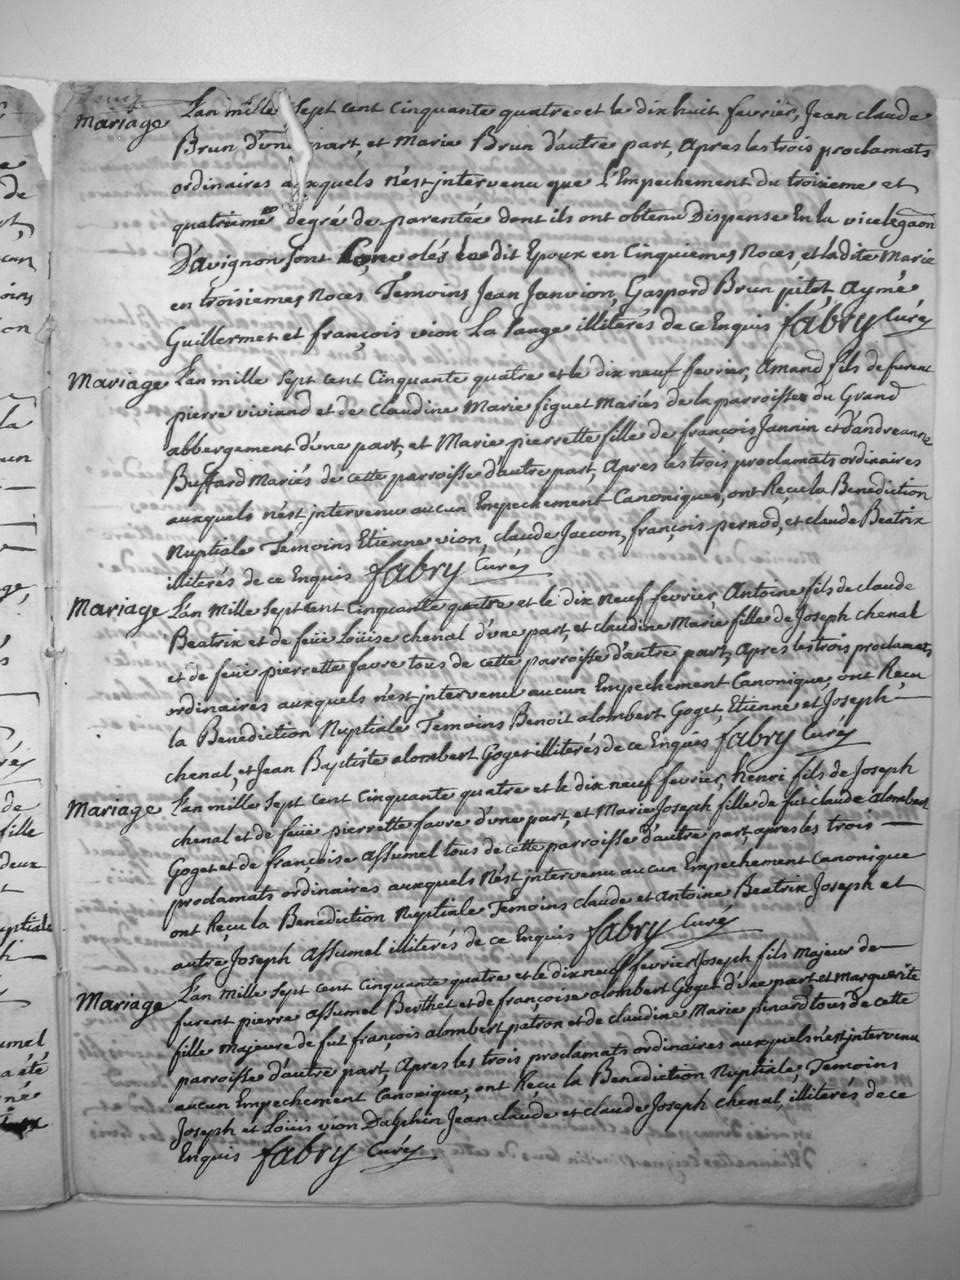 mariage L'an mille sept cent cinquante quatre et le dix huit fevrier, Jean claude
Brun d'une part, et Marie Brun d'autre part, apres les trois proclamats
ordinaires auxquels n'est jntervenu que l'Empechement du troisieme et
quatrieme degré de parentée dont ils ont obtenu Dispense En la vicelegaõn
D'avignon sont dit Epoux en Cinquiemes Noces, et ladite Marie
en troisiemes Noces Temoins Jean Janvion, Gaspard Brun pitot Aymé
Guillermet et françois vion La pange illiterés de ce Enquis fabry Curé
Mariage L'an mille sept cent Cinquante quatre et le dix neuf fevrier, Amand fils de furent
pierre viviand et de Claudine Marie figuet Mariés de la parroisse du Grand
abbergement d'une part, et Marie pierrette fille de françois Jannin et d'andreanne
Buffard Mariés de cette parroisse d'autre part, Apres les trois proclamats ordinaires
auxquels n'est jntervenu aucun Empechement Canoniques, ont Reçu la Benediction
Nuptiale Temoins Etienne vion, claude Jacon, françois pernod, et claude Beatrix
illiterés de ce Enquis fabry Curé
Mariage L'an Mille Sept cent Cinquante quatre et le dix neuf fevrier, Antoine fils de claude
Beatrix et de feüe Loüise chenal d'vne part, et claudine Marie fille de Joseph chenal
et de feüe pierrette favre tous de cette parroisse d'autre part, Apres les trois proclamats
ordinaires auxquels n'est jntervenu aucun Empechement Canonique, ont Reçu
la Benediction Nuptiale Temoins Benoit alombert Goget, Etienne et Joseph
chenal, et Jean Baptiste alombert Goget illiterés de ce Enquis fabry Curé
Mariage L'an mille sept cent cinquante quatre et le dix neuf fevrier, henri fils de Joseph
chenal et de feüe pierrette favre d'vne part, et Marie Joseph fille de fut claude alombert
Goget et de françoise Assumel tous de cette parroisse d'autre part, apres les trois
proclamats ordinaires auxquels N'est jntervenu aucun Empechement Canonique
ont Reçu la Benediction Nuptiale Temoins claude et Antoine Beatrix Joseph et
autre Joseph Assumel illiterés de ce Enquis fabry Curé
Mariage L'an mille sept cent cinquante quatre et le dix neuf fevrier Joseph fils Majeur de
furent pierre Assumel Berthet et de françoise alombert Goget d'vne part et marguerite
fille Majeure de fut françois alombert patron et de claudine Marie pinard tous de cette
parroisse d'autre part, Apres les trois proclamats ordinaires auxquels n'est jntervenu
aucun Empechement Canonique, ont Reçu la Benediction Nuptiale, Temoins
Joseph et Loüis vion Dalphin, Jean claude et claude Joseph chenal, illiterés de ce
Enquis fabry Curé